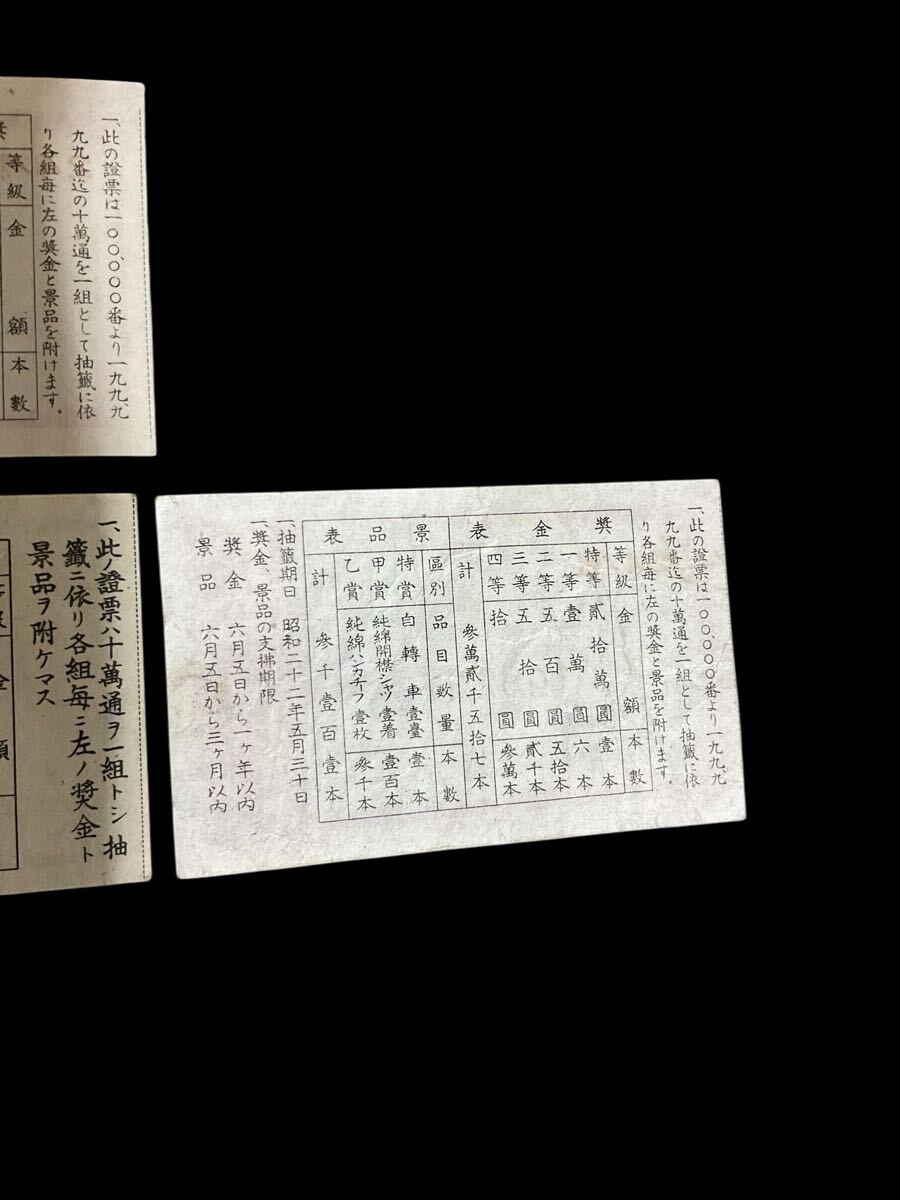 一、此の證票は一〇〇、〇〇〇番より一九九、九
九九番迄の十萬通を一組として抽籤に依
り各組每に左の獎金と景品を附けます。
等級 金額 本數
一、此ノ證票ハ十萬通ヲ一組トシ抽
籤ニ依リ各組每ニ左ノ獎金ト
景品ヲ附ケマス
一、此の證票は一〇〇、〇〇〇番より一九九、九
九九番迄の十萬通を一組として抽籤に依
り各組每に左の獎金と景品を附けます。
獎金表
等級 金額 本數
特等 貳拾萬圓 壹本
一等 壹萬圓 六本
二等 五百圓 五拾本
三等 五拾圓 貳千本
四等 拾圓 參萬本
計 參萬貳千五拾七本
景品表
區別 品目數量 本數
特賞 自轉車壹臺 壹本
甲賞 純綿開襟シャツ壹着 壹百本
乙賞 純綿ハンカチーフ壹枚 參千本
計 參千壹百壹本
一、抽籤期日 昭和二十二年五月三十日
一、獎金、景品の支拂期限
獎金 六月五日から一ヶ年以內
景品 六月五日から三ヶ月以內